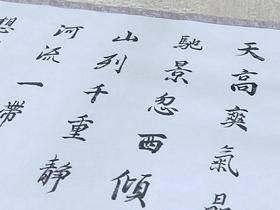 天高爽氣
馳景忽西傾
山列千重靜
河流一帶
想